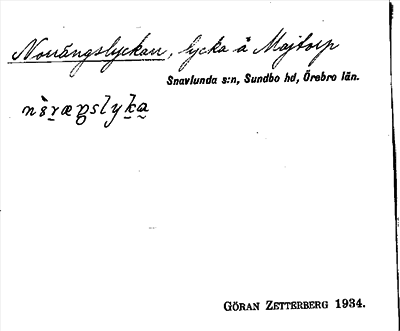 Norrängslyckan, lycka å Majtorp
Snavlunda s:n, Sundbo hd, Örebro län.
GÖRAN ZETTERBERG 1934.